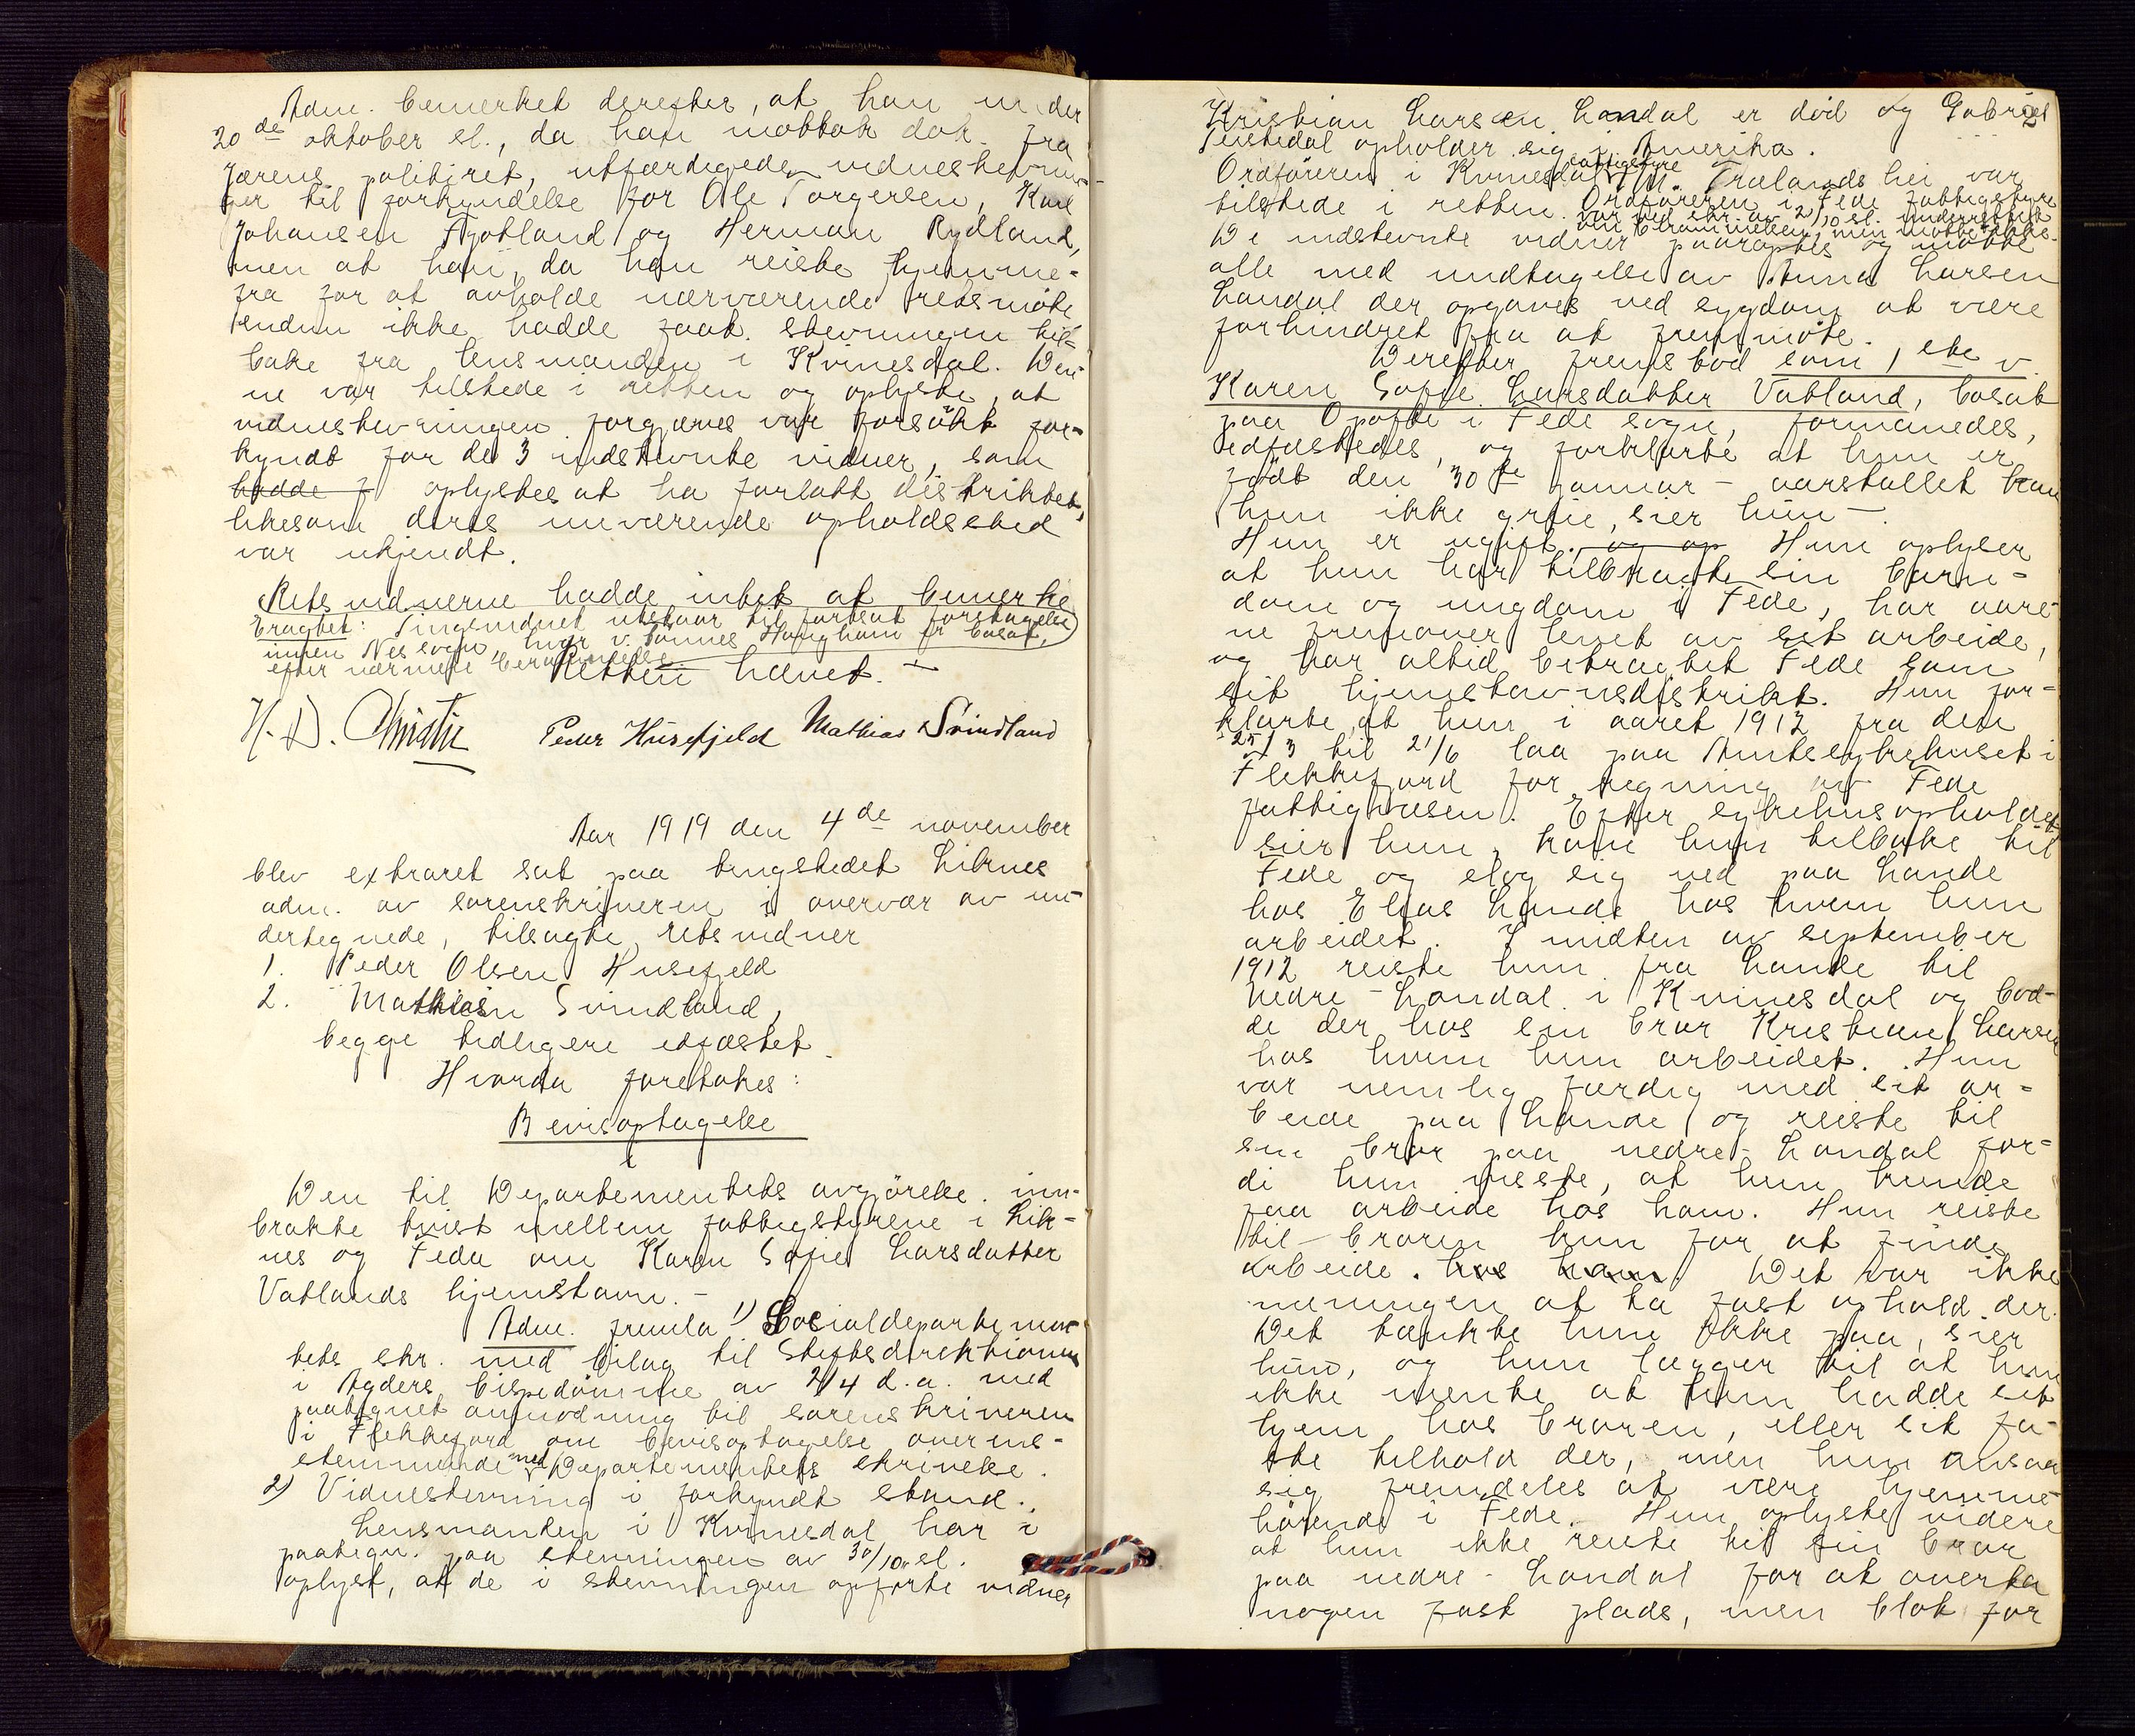 Adm. bemerket derefter, at han under
20de oktober sl., da han mottok dok. fra
Jærens politiret, utfærdigede vidnestevnin-
ger til forkyndelse for Ole Torgersen, Karl
Johansen Fjotland og Herman Rydland,
men at han, da han reiste hjemme-
fra for at avholde nærværende retsmöte
endnu ikke hadde faat stevningen til-
bake fra lensmanden i Kvinesdal. Den-
ne var tilstede i retten og oplyste, at
vidnestevningen forgjæves var forsökt for-
kyndt for de 3 indstevnte vidner, som
hadde f oplystes at ha forlatt distriktet,
likesom deres nuværende opholdssted
var ukjendt.
Retsvidnerne hadde intet at bemerke
Eragtet: Tingsvidnet utstaar til fortsat foretagelse
innen Nes sogn, hvor v. Tönnes Haugham er bosat,
efter nærmere berammelse
Retten hævet. –
H. D. Christie Peder Husefjeld Mathias Svindland
Aar 1919 den 4de november
blev extraret sat paa tingstedet Liknes
adm. av sorenskriveren i overvær av un-
dertegnede, tilsagte retsvidner
1. Peder Olsen Husefjeld
2. Mathias Svindland,
begge tidligere edfæstet.
Hvorda foretokes:
Bevisoptagelse
i
Den til Departementets avgjörelse inn-
brakte tvist mellem fattigstyrene i Lik-
nes og Feda om Karen Sofie Larsdatter
Vatlands hjemstavn. –
Adm. fremla 1) Socialdepartemen-
tets skr. med bilag til Stiftsdirektionen
i Agders bispedömme av 2/4 d.a. med
paategnet anmodning til sorenskriveren
i Flekkefjord om bevisoptagelse overens-
stemmende med Departementets skrivelse.
2) Vidnestevning i forkyndt stand.
Lensmanden i Kvinesdal har i
paategn. paa stevningen av 30/10 sl.
oplyst, at de i stevningen opförte vidner
2
Kristian Larsen Londal er död og Gabriel
Teistedal opholder sig i Amerika.
Ordföreren i Kvinesdal fattigstyre T.M. Trælandshei var
tilstede i retten. Ordföreren i Fede fattigstyre
var ved skr. av 2/10 sl. underrettet
om berammelsen, men mötte ikke.
De indstevnte vidner paaroptes og mötte
alle med undtagelse av Anna Larsen
Londal der opgaves ved sygdom at være
forhindret fra at fremmöte.
Derefter fremstod som 1ste v.
Karen Sofie Larsdatter Vatland, bosat
paa Opofte i Fede sogn, formanedes,
edfæstedes, og forklarte at hun er
födt den 30te januar – aarstallet kan
hun ikke greie, sier hun –.
Hun er ugift. og op Hun oplyser
at hun har tilbragt sin barn-
dom og ungdom i Fede, har aare-
ne fremover levet av sit arbeide,
og har altid betragtet Fede som
sit hjemstavnsdistrikt. Hun for-
klarte, at hun i aaret 1912 fra den
25/3 til 21/6 laa paa Amtssykehuset i
Flekkefjord for regning av Fede
fattigvæsen. Efter sykehusopholdet
sier hun, kom hun tilbake til
Fede og slog sig ned paa Lande
hos Elias Lande hos hvem hun
arbeidet. I midten av september
1912 reiste hun fra Lande til
Nedre-Londal i Kvinesdal og bod-
de der hos sin bror Kristian Larsen
hos hvem hun arbeidet. Hun
var nemlig færdig med sit ar-
beide paa Lande og reiste til
sin bror paa nedre-Londal for-
di hun visste, at hun kunde
faa arbeide hos ham. Hun reiste
til broren kun for at finde
arbeide. hos ham. Det var ikke
meningen at ta fast ophold der.
Det tænkte hun ikke paa, sier
hun, og hun lægger til at hun
ikke mente at hun hadde sit
hjem hos broren, eller sit fa-
ste tilhold der, men hun ansaa
sig fremdeles at være hjemme-
hörende i Fede. Hun oplyste videre
at hun ikke reiste til sin bror
paa nedre-Londal for at overta
nogen fast plads, men blot for